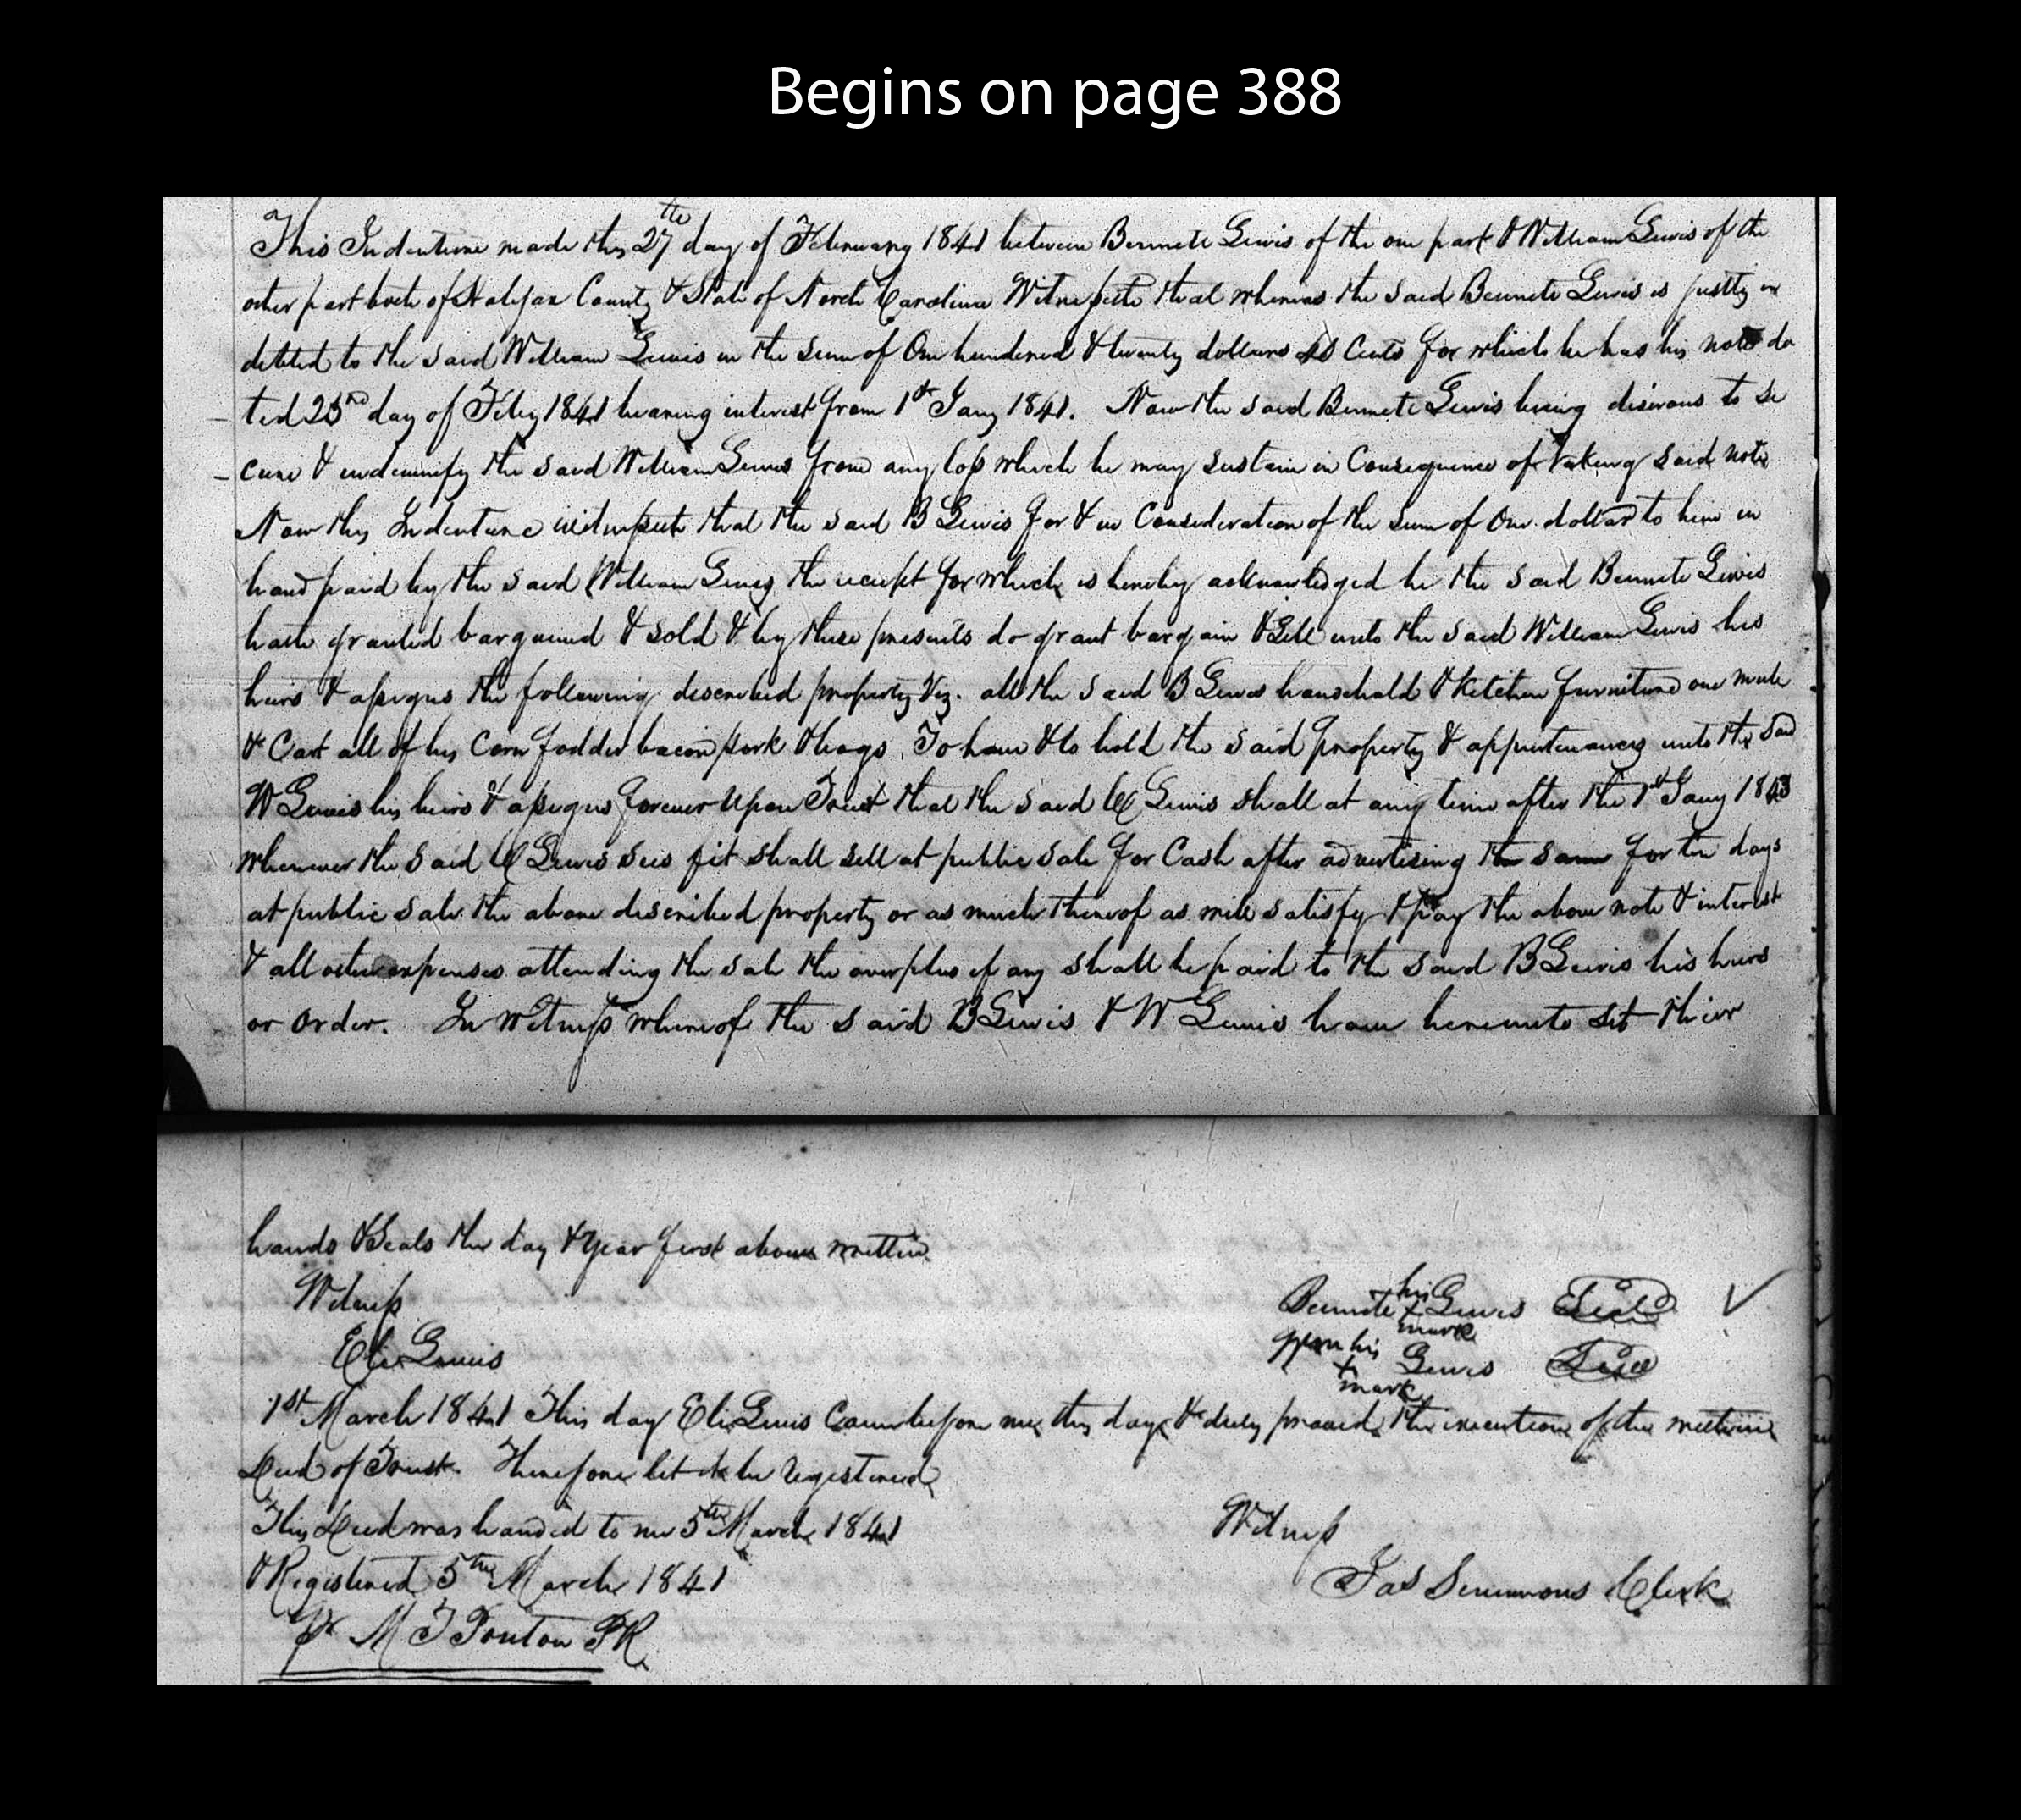 Begins on page 388
This Indenture made this 27th day of February 1841 between Bennett Lewis of the one part & William Lewis of the
other part both of Halifax County & State of North Carolina Witnesseth that whereas the said Bennett Lewis is justly in
debted to the said William Lewis in the sum of One hundred & twenty dollars Cents for which he has his note da
ted 25th day of Feby 1841 bearing interest from 1st Jany 1841. Now the said Bennett Lewis being desirous to se
cure & indemnify the said William Lewis from any loss which he may sustain in Consequence of taking said note
Now this Indenture witnesseth that the said B Lewis for & in Consideration of the sum of One dollar to him in
hand paid by the said William Lewis the receipt for which is hereby acknowledged he the said Bennett Lewis
hath granted bargained & sold & by these presents do grant bargain & Sell unto the said William Lewis his
heirs & assigns the following described property Viz. all the said B Lewis household & Kitchen furniture one mule
& Cart all of his Corn fodder bacon pork & hogs To have & to hold the said property & appurtenances unto the Said
W Lewis his heirs & assigns forever Upon Trust that the said W Lewis shall at any time after the 1st Jany 1843
whenever the said W Lewis sees fit shall sell at public sale for Cash after advertising the same for ten days
at public sale the above described property or as much thereof as will satisfy & pay the above note & interest
& all other expenses attending the sale the overplus if any shall be paid to the said B Lewis his heirs
or order. In Witness whereof the said B Lewis & W Lewis have hereunto set thier
hands & Seals the day & year first above written
Witness
Eli Lewis
his
Bennett + Lewis Seal
mark
his
+ Lewis Seal
mark
1st March 1841 This day Eli Lewis Came before me this day & duly proved the execution of the within
Deed of Trust. Therefore let it be registered
This Deed was handed to me 5th March 1841
& Registered 5th March 1841
Witness
Jas Simmons Clerk
Pr M T Ponton PR